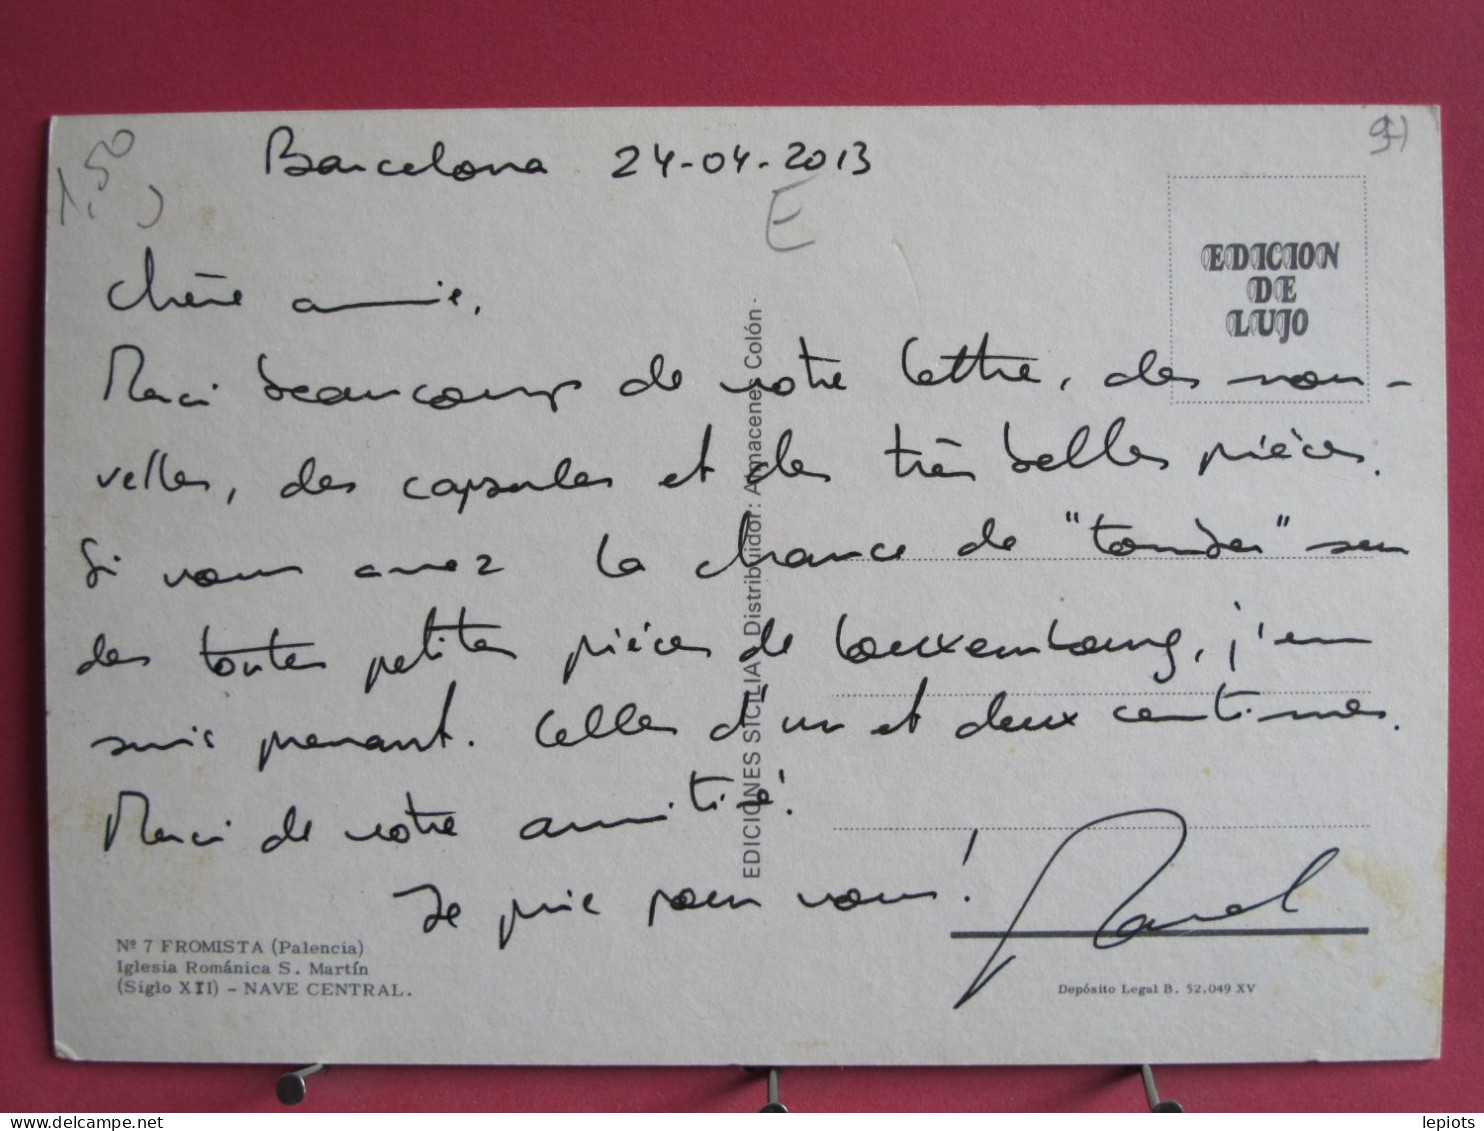 1,50
Barcelona 24-04-2013
91
E
Chère amie,
EDICION
DE
LUJO
Merci beaucoup de votre lettre, des nou-
velles, des capsules et des très belles pièces.
Si vous avez la chance de "tomber" sur
des toutes petites pièces de Louxembourg, j'en
suis prenant. Celles d'un et deux centimes.
Merci de votre amitié!
Je prie pour vous!
EDICIONES SICILIA Distribuidor: Almacenes Colón
Nº 7 FROMISTA (Palencia)
Iglesia Románica S. Martín
(Siglo XII) - NAVE CENTRAL.
Depósito Legal B. 52.049 XV
delcampe.net
lepiots